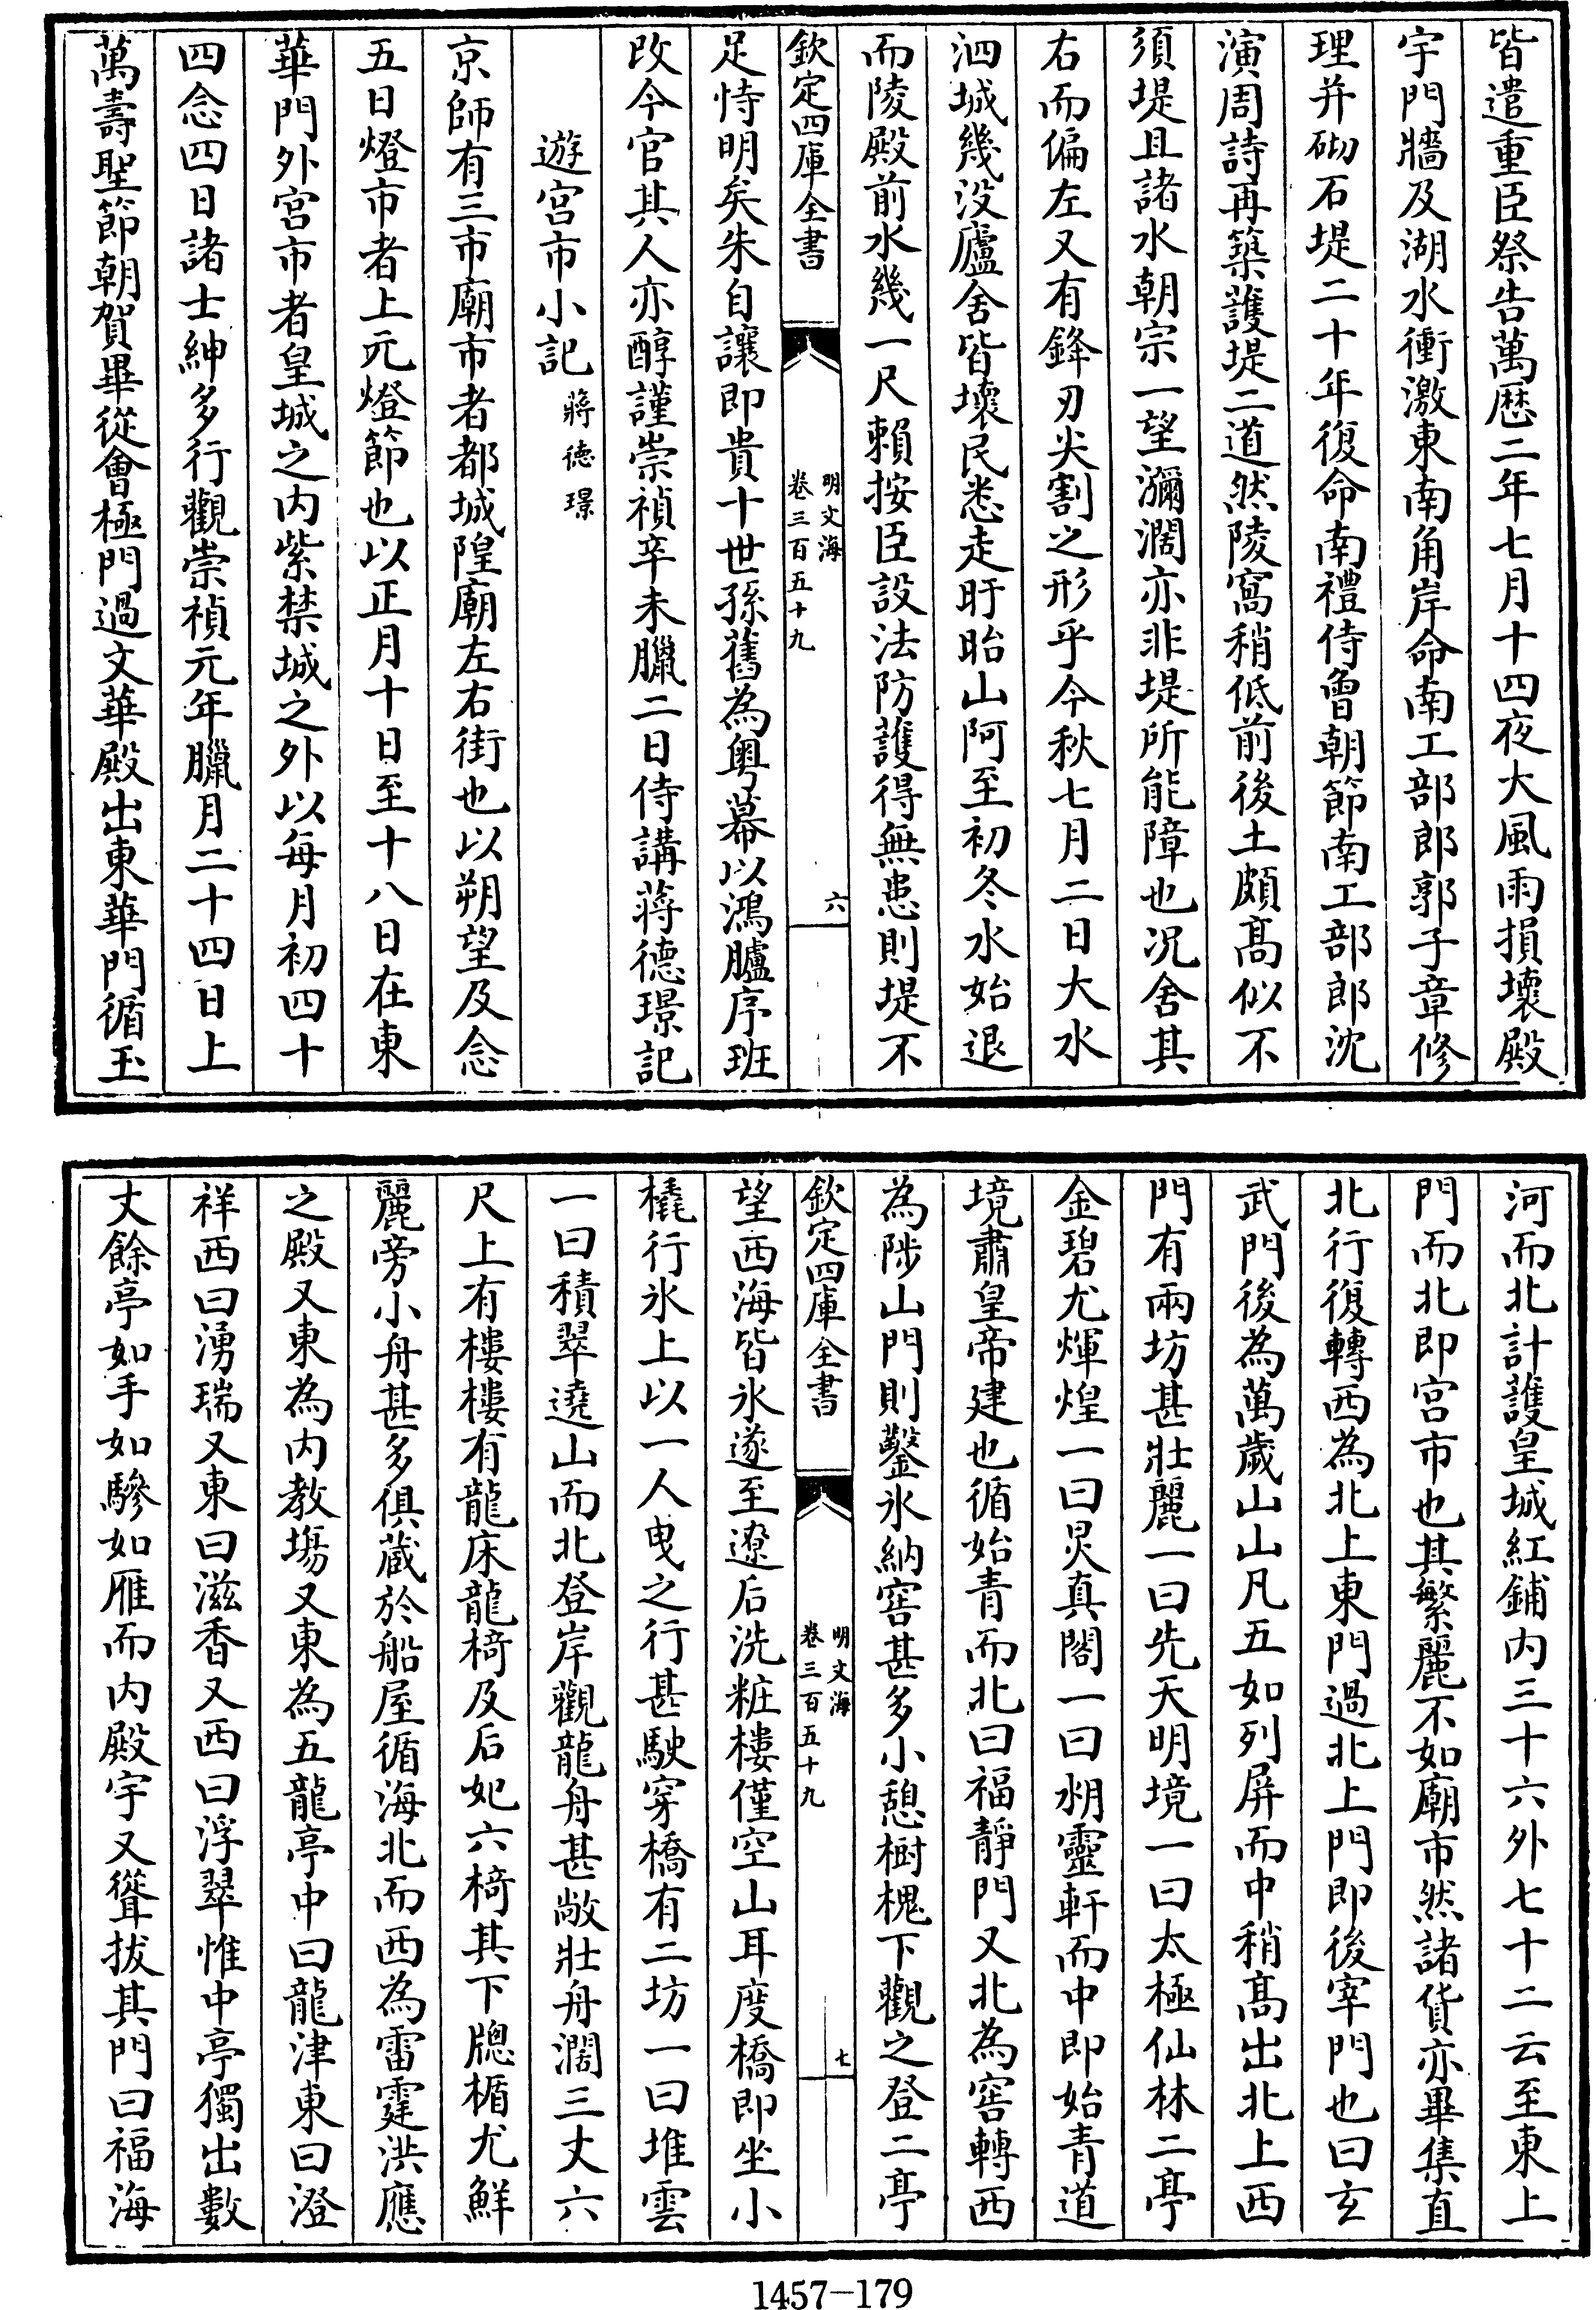 皆遣重臣祭告萬歴二年七月十四夜大風雨損壞殿
宇門牆及湖水衝激東南角岸命南工部郎郭子章修
理并砌石堤二十年復命南禮侍曾朝節南工部郎沈
演周詩再築護堤二道然陵窩稍低前後土頗髙似不
須堤且諸水朝宗一望瀰濶亦非堤所能障也况舍其
右而偏左又有鋒刃尖割之形乎今秋七月二日大水
泗城幾没廬舍皆壞民悉走盱眙山阿至初冬水始退
而陵殿前水幾一尺賴按臣設法防護得無患則堤不
欽定四庫全書
明文海
卷三百五十九
六
足恃明矣朱自讓即貴十世孫舊為粤幕以鴻臚序班
改今官其人亦醇謹崇禎辛未臘二日侍講蔣德璟記
遊宫市小記 蔣德璟
京師有三市廟市者都城隍廟左右街也以朔望及念
五日燈市者上元燈節也以正月十日至十八日在東
華門外宫市者皇城之内紫禁城之外以每月初四十
四念四日諸士紳多行觀崇禎元年臘月二十四日上
萬壽聖節朝賀畢從會極門過文華殿出東華門循玉
河而北計護皇城紅鋪内三十六外七十二云至東上
門而北即宫市也其繁麗不如廟市然諸貨亦畢集直
北行復轉西為北上東門過北上門即後宰門也曰玄
武門後為萬歲山山凡五如列屏而中稍髙出北上西
門有兩坊甚壯麗一曰先天明境一曰太極仙林二亭
金碧尤煇煌一曰炅真閣一曰㫚靈軒而中即始青道
境肅皇帝建也循始青而北曰福靜門又北為窖轉西
為陟山門則鑿氷納窖甚多小憩樹槐下觀之登二亭
欽定四庫全書
明文海
卷三百五十九
七
望西海皆氷遂至遼后洗粧樓僅空山耳度橋即坐小
橇行氷上以一人曳之行甚駛穿橋有二坊一曰堆雲
一曰積翠遶山而北登岸觀龍舟甚敞壯舟濶三丈六
尺上有樓樓有龍床龍椅及后妃六椅其下牕楯尤鮮
麗旁小舟甚多俱蔵於船屋循海北而西為雷霆洪應
之殿又東為内教場又東為五龍亭中曰龍津東曰澄
祥西曰湧瑞又東曰滋香又西曰浮翠惟中亭獨出數
丈餘亭如手如驂如雁而内殿宇又聳拔其門曰福海
1457—179